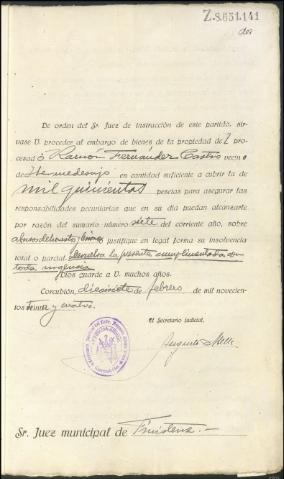 Z-8.651.141
dos
De orden del Sr. Juez de instrucción de este partido, sír-
vase V. proceder al embargo de bienes de la propiedad del pro-
cesado Ramón Fernández Castro vecino
de en cantidad suficiente a cubrir la de
mil quinientas pesetas para asegurar las
responsabilidades pecuniarias que en su día puedan alcanzarle
por razón del sumario número siete del corriente año, sobre
justifique en legal forma su insolvencia
total o parcial. devuelva la presente cumplimentada con
toda urgencia
Dios guarde a V. muchos años.
Corcubión, diecisiete de febrero de mil novecien-
tos treinta y cuatro.
El Secretario judicial,
Sr. Juez municipal de Finisterre.—